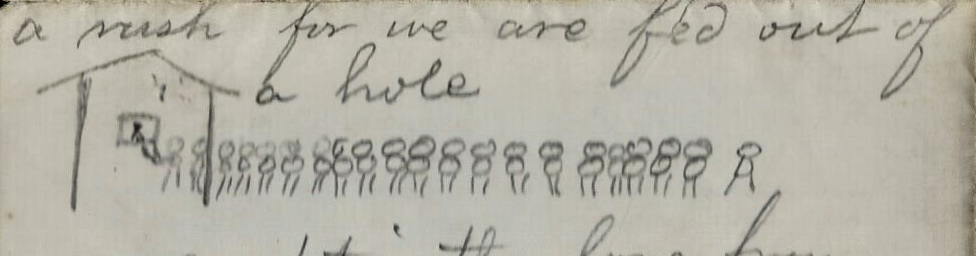 a rush for we are fed out of
a hole